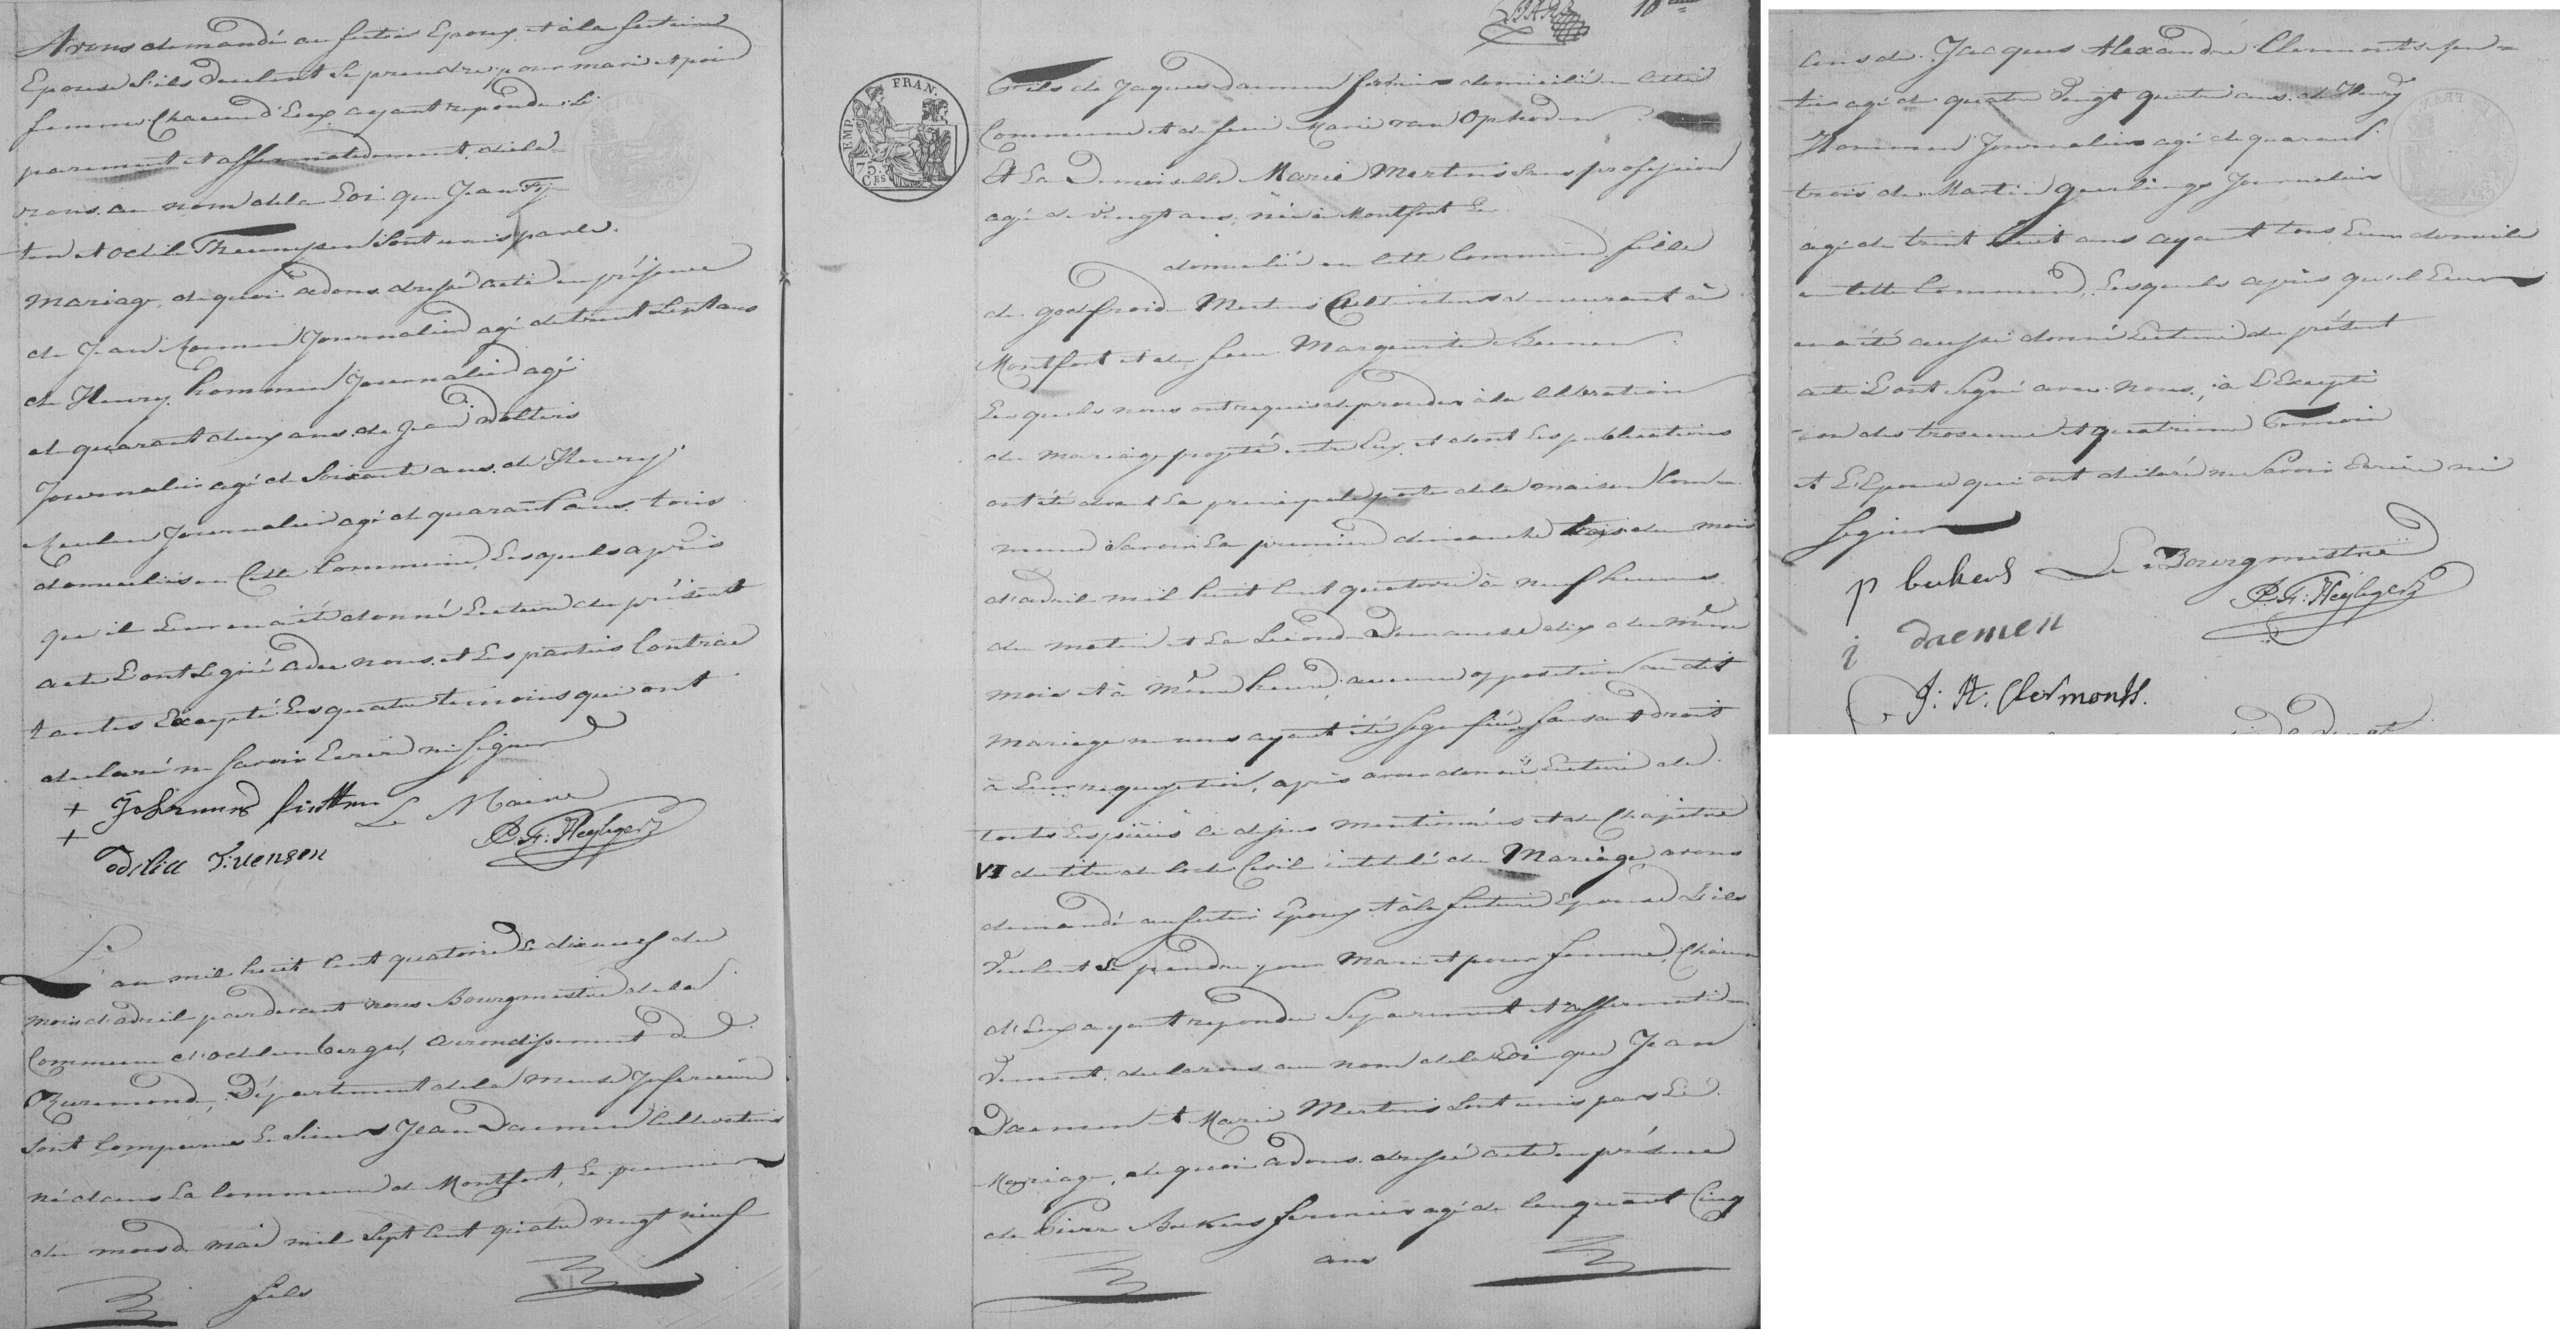 Avons demandé au futur Epoux et à la future
Epouse s'ils veulent se prendre pour mari et pour
femme, chacun d'Eux ayant repondu Sé
parement et affermativement, decla
rons au nom de la Loi que Jean
et Odile Theunissen sont unis par le
mariage, de quoi avons dressé acte en présence
de Jean journalier agé de trent Sept ans
de Henry hommen journalier agé
de quarant deux ans, de Jean Wolters
journalier agé de Soixante ans, de Henry
Meulen journalier agé de quarant ans, tous
domiciliés en Cette Commune, Lesquels après
que il Leur en a été donné Lecture du présent
acte L'ont Signé avec nous et Les parties Contrac
tantes Excepté Les quatre temoins qui ont
declaré ne Savoir Ecrire ni Signer
+ Johannes Le Maire
+ P. F. Heyligerz
odilia Tiuensen
L'an mil huit Cent quatorze Le dixneuf du
mois d'avril pardevant nous Bourgmestre de la
Commune d'Odilienberge, arrondissement de
Ruremond, Département de la Meuse Inferieure
Sont Comparus Le Sieur Jean Daemen Cultivateur
né dans La Commune de Montfort, Le premier
du mois de mai mil Sept Cent quatre vingt neuf
fils
EMP. FRAN.
75 CES
Fils de Jaques Daemen fermier domicilié en Cette
Commune et de feu Marie van Ophoven
Et La Demoiselle Marie Mertens Sans profession
agé de vingt ans, née à Montfort Le
domicilié en Cette Commune, fille
de godfroid Mertens Cultivateur demeurant à
Montfort et de feu Marguerite
Lesquels nous ont requis de proceder à la Celebration
du mariage projeté entre Eux, et dont Les publications
ont été devant La principale porte de la maison Com
mune Savoir La premiere dimanche trois du mois
d'avril mil huit Cent quatorze à neuf heures
du matin et La Seconde Dimanche dix du même
mois et à même heure, aucune opposition au dit
mariage ne nous ayant été Signifiée, faisant droit
à Leur requisition, après avoir donné Lecture de
toutes Les pièces ci dessus mentionnées et du Chapitre
VI du titre du Code Civil intitulé du Mariage, avons
demandé au futur Epoux et à la future Epouse S'ils
veulent Se prendre pour Mari et pour femme, Chacun
d'Eux ayant repondu Separement et affermati
vement, declarons au nom de la Loi que Jean
Daemen et Marie Mertens Sont unis par Le
Mariage, de quoi avons dressé acte en présence
de Pierre Beckers fermier agé de Cinquant Cinq
ans
ans de Jacques Alexandre Clermonts
agé de quatre vingt quatre ans, de Henry
Hommen Journalier agé de quarant
trois de Martin geerlings Journalier
agé de trent huit ans ayant tous Leur domicile
en Cette Commune, Lesquels après qu'il Leur
en a été aussi donné Lecture du présent
acte L'ont Signé avec nous, à L'Excepti
on des troisieme et quatrieme Temoin
et L'Epouse qui ont declaré ne Savoir Ecrire ni
Signer
p bekers Le Bourgmestre
P. F. Heyligerz
j daemen
J: A: Clermonts.